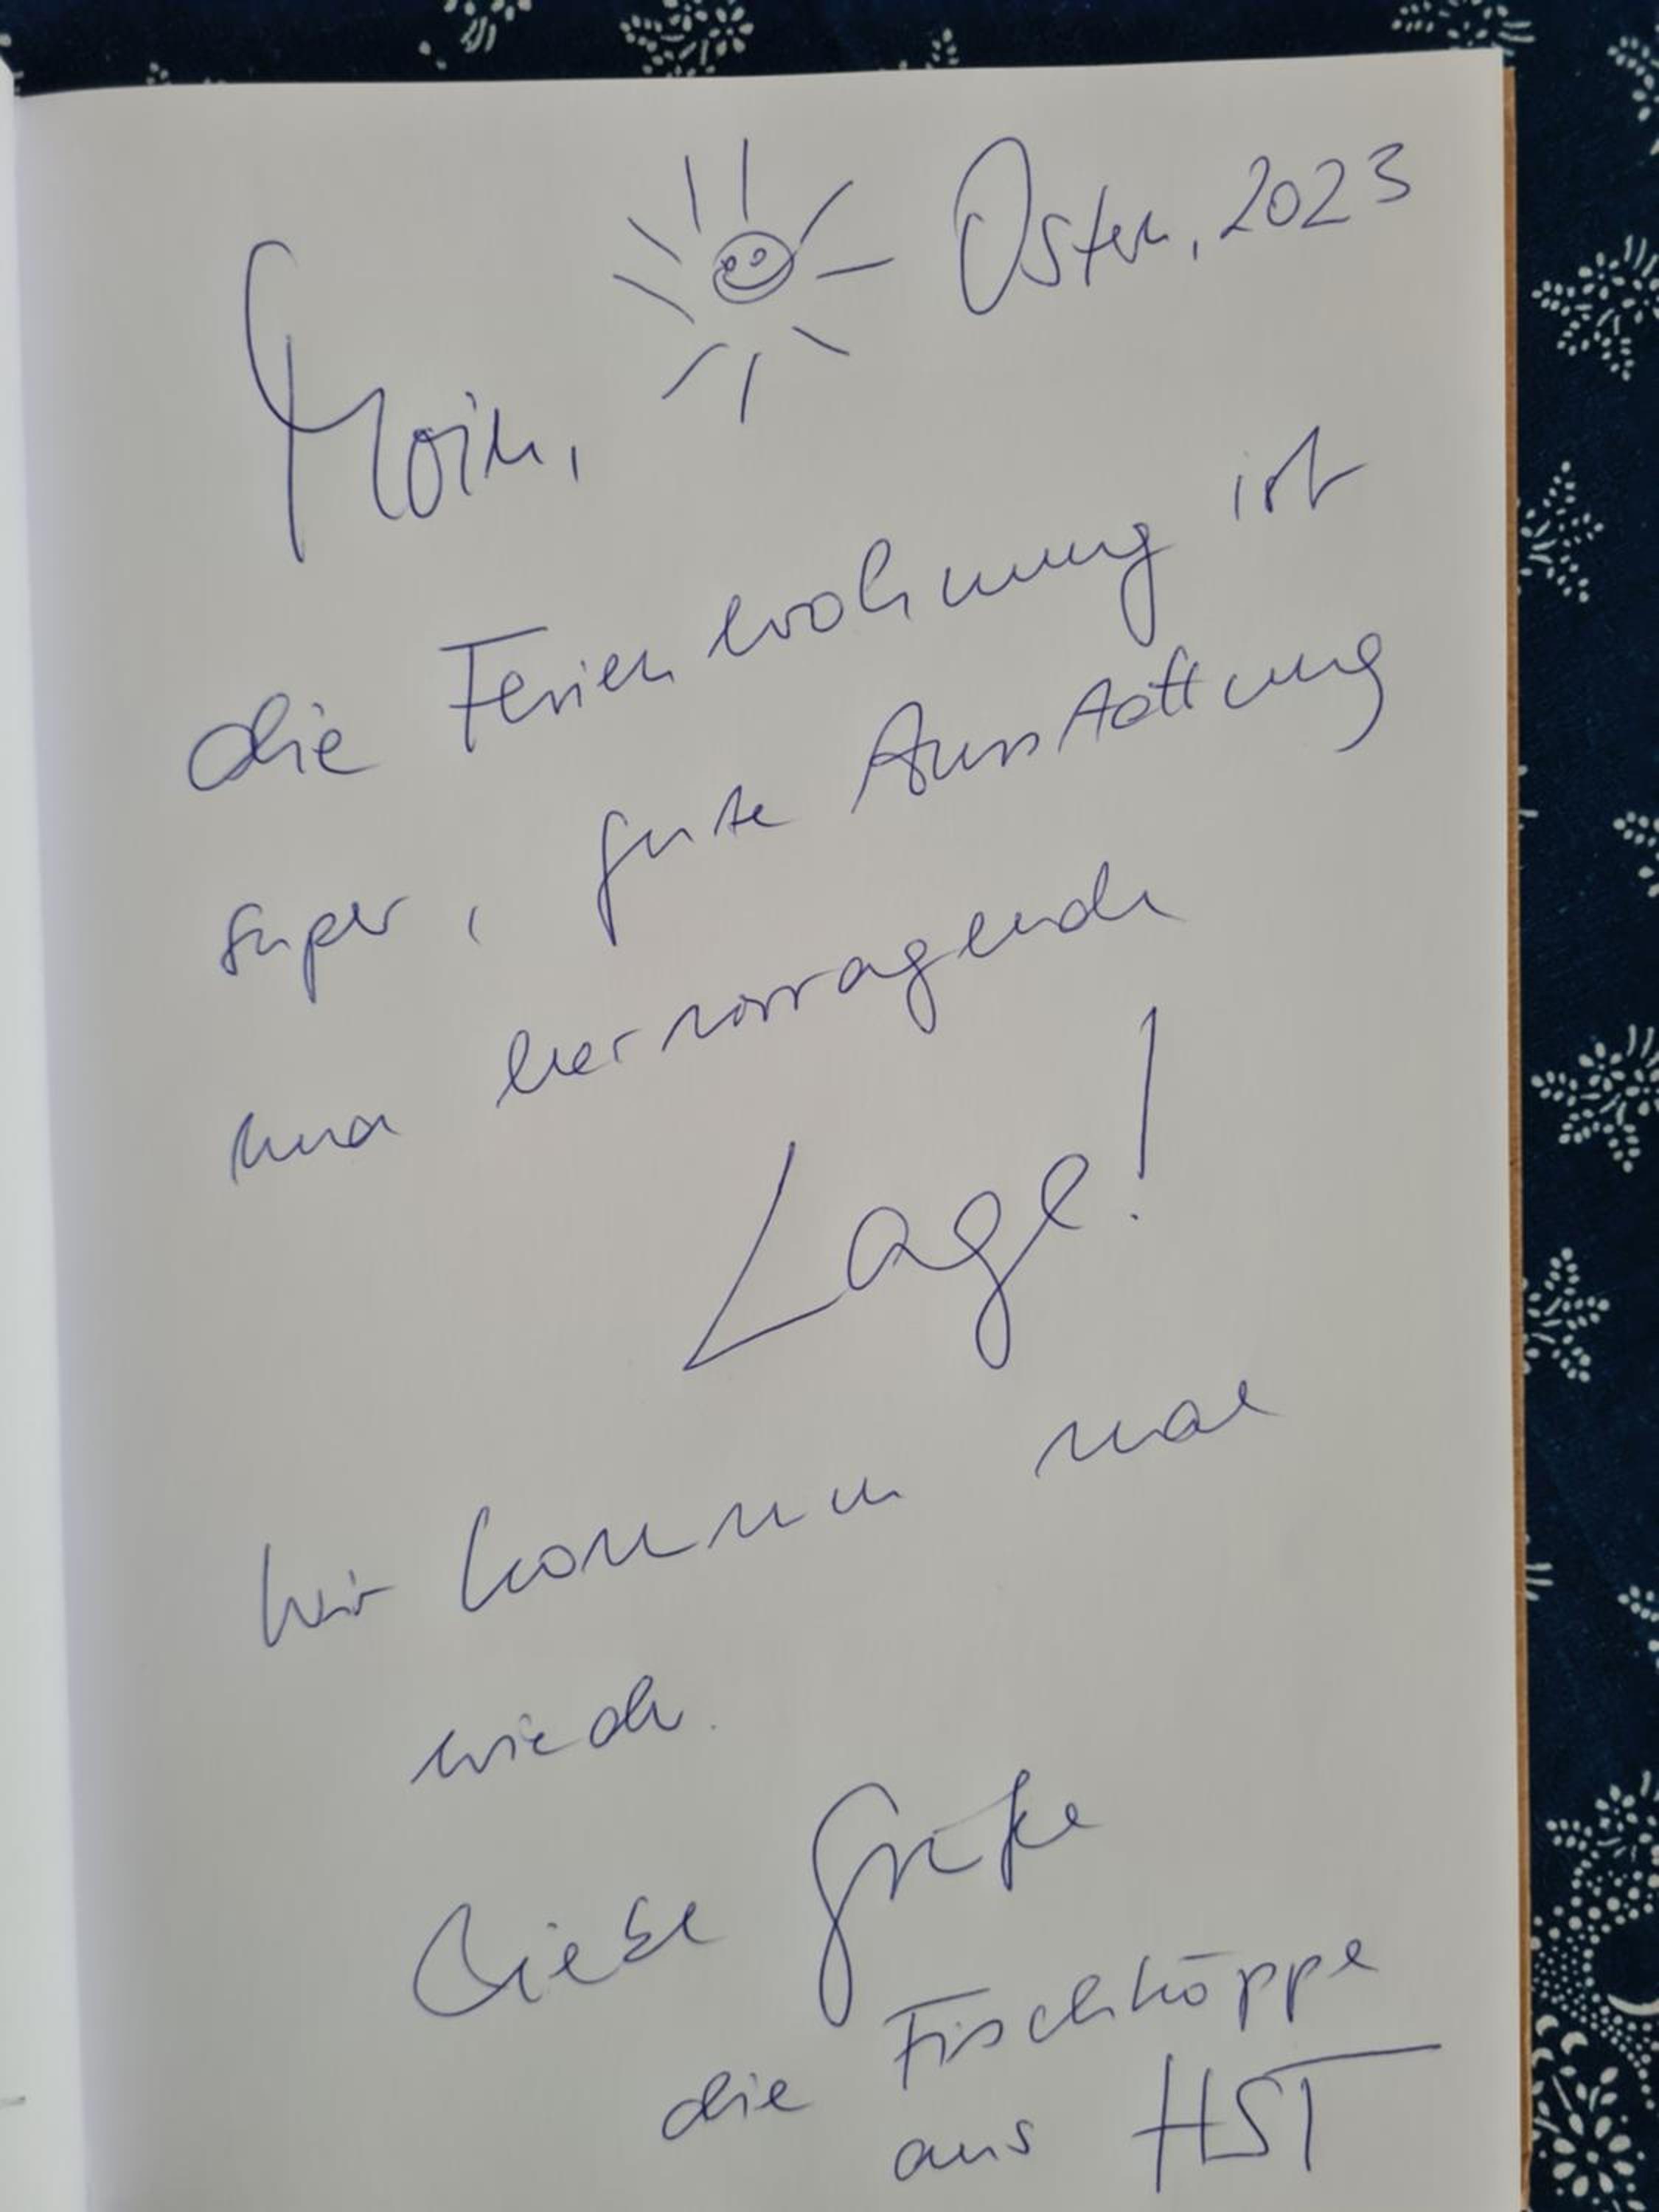 Ostern, 2023
Moin,
die Ferienwohnung ist
super, gute Ausstattung
und hervorragende
Lage!
Wir kommen mal
wieder.
Liebe Grüße
die Fischköppe
aus HST